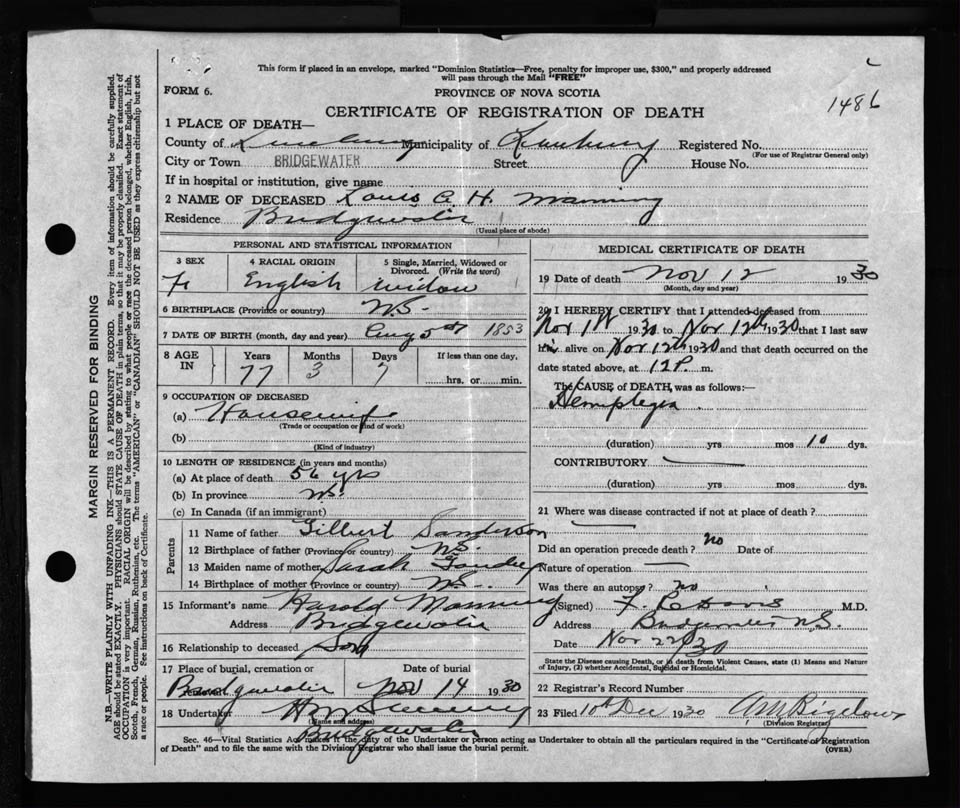 This form if placed in an envelope, marked "Dominion Statistics—Free, penalty for improper use, $300," and properly addressed
will pass through the Mail "FREE"
FORM 6.
PROVINCE OF NOVA SCOTIA
1486
CERTIFICATE OF REGISTRATION OF DEATH
1 PLACE OF DEATH—
County of Lunenburg Municipality of Lunenburg Registered No.
(For use of Registrar General only)
City or Town BRIDGEWATER Street House No.
If in hospital or institution, give name
2 NAME OF DECEASED Louis A. H. Manning
Residence Bridgewater
(Usual place of abode)
PERSONAL AND STATISTICAL INFORMATION
3 SEX 4 RACIAL ORIGIN 5 Single, Married, Widowed or Divorced. (Write the word)
F English widow
6 BIRTHPLACE (Province or country) N.S.
7 DATE OF BIRTH (month, day and year) Aug 5th 1853
8 AGE IN Years Months Days If less than one day,
77 3 7 hrs. or min.
9 OCCUPATION OF DECEASED
(a) Housewife
(Trade or occupation or kind of work)
(b)
(Kind of industry)
10 LENGTH OF RESIDENCE (in years and months)
(a) At place of death 56 yrs
(b) In province N.S.
(c) In Canada (if an immigrant)
Parents
11 Name of father Gilbert Sanderson
12 Birthplace of father (Province or country) N.S.
13 Maiden name of mother Sarah
14 Birthplace of mother (Province or country) N.S.
15 Informant's name Harold Manning
Address Bridgewater
16 Relationship to deceased Son
17 Place of burial, cremation or Date of burial
Bridgewater Nov 14 1930
18 Undertaker
(Name and address)
Bridgewater
MEDICAL CERTIFICATE OF DEATH
19 Date of death Nov 12 1930
(Month, day and year)
20 I HEREBY CERTIFY that I attended deceased from
Nov 1st 1930 to Nov 12th 1930 that I last saw
h alive on Nov 12th 1930 and that death occurred on the
date stated above, at 12 P. m.
The CAUSE OF DEATH, was as follows:—
Hemiplegia
(duration) yrs mos 10 dys.
CONTRIBUTORY
(duration) yrs. mos. dys.
21 Where was disease contracted if not at place of death?
Did an operation precede death? no Date of
Nature of operation —
Was there an autopsy? no
(Signed) Davis M.D.
Address Bridgewater N.S.
Date Nov 22 /30
State the Disease causing Death, or in death from Violent Causes, state (1) Means and Nature
of Injury, (2) whether Accidental, Suicidal or Homicidal.
22 Registrar's Record Number
23 Filed 10th Dec 1930 Bigelow
(Division Registrar)
Sec. 46—Vital Statistics Act makes it the duty of the Undertaker or person acting as Undertaker to obtain all the particulars required in the "Certificate of Registration
of Death" and to file the same with the Division Registrar who shall issue the burial permit.
(OVER)
MARGIN RESERVED FOR BINDING
N.B.—WRITE PLAINLY WITH UNFADING INK—THIS IS A PERMANENT RECORD. Every item of information should be carefully supplied.
AGE should be stated EXACTLY. PHYSICIANS should STATE CAUSE OF DEATH in plain terms, so that it may be properly classified. Exact statement of
OCCUPATION is very important. RACIAL ORIGIN will be described by stating to what people or race the deceased person belonged, whether English, Irish,
Scotch, French, German, Russian, Ruthenian, etc. The terms "AMERICAN" or "CANADIAN" SHOULD NOT BE USED as they express citizenship but not
a race or people. See instructions on back of Certificate.